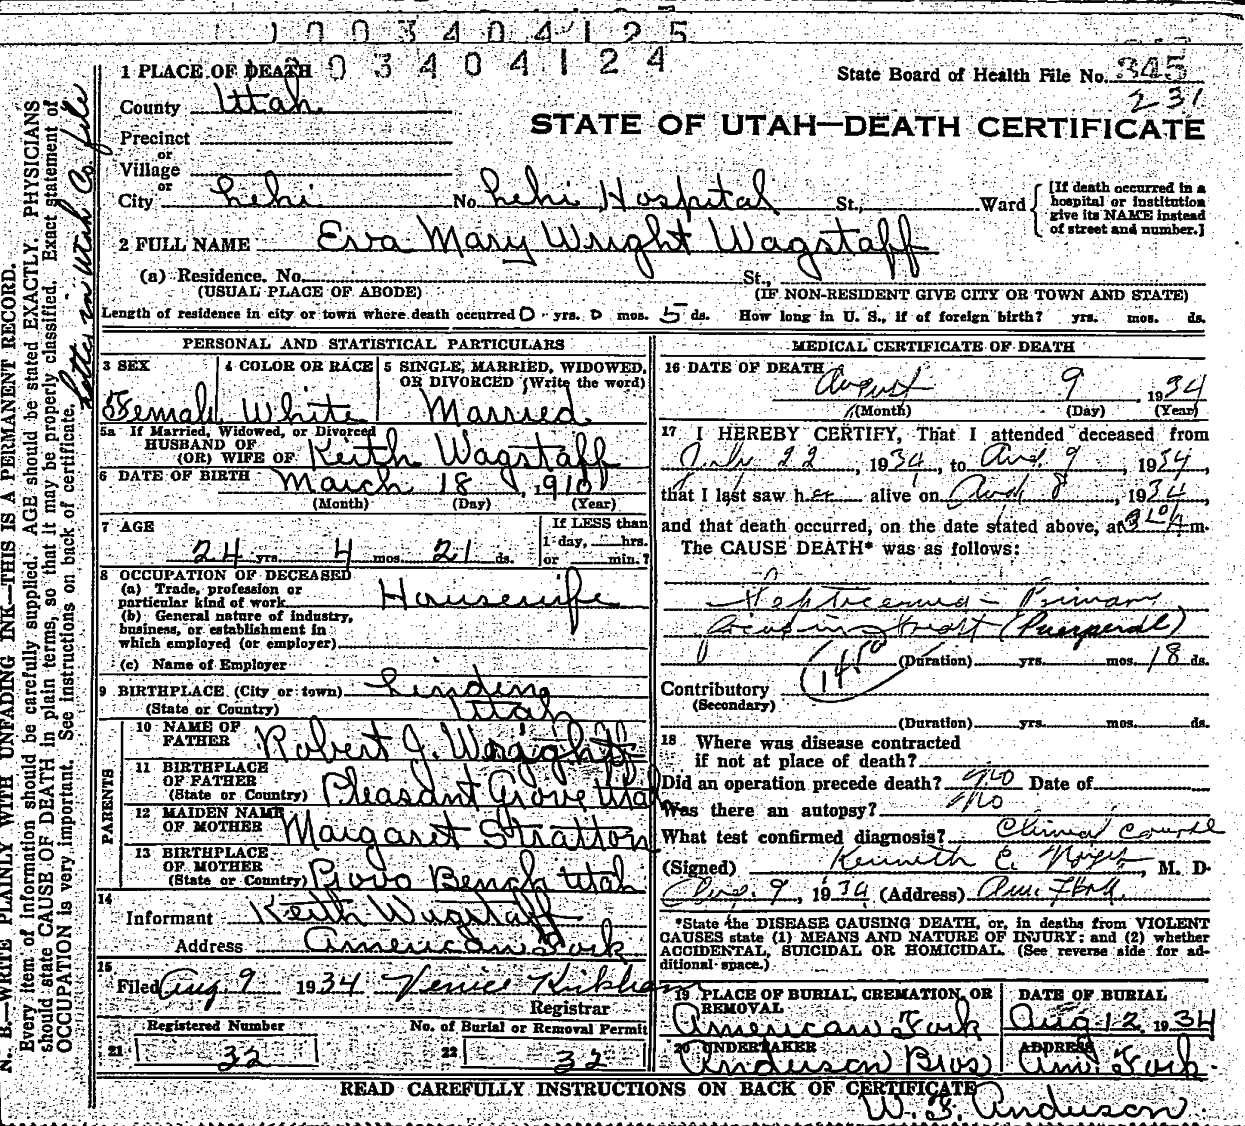 1 0 0 3 4 0 4 1 2 5
0 3 4 0 4 1 2 4
1 PLACE OF DEATH
State Board of Health File No. 345
County Utah
231
STATE OF UTAH—DEATH CERTIFICATE
Precinct
or
Village
or
City Lehi No. Lehi Hospital St., Ward
[If death occurred in a
hospital or institution
give its NAME instead
of street and number.]
2 FULL NAME Eva Mary Wright Wagstaff
(a) Residence. No. St.,
(USUAL PLACE OF ABODE) (IF NON-RESIDENT GIVE CITY OR TOWN AND STATE)
Length of residence in city or town where death occurred 0 yrs. 0 mos. 5 ds. How long in U. S., if of foreign birth? yrs. mos. ds.
PERSONAL AND STATISTICAL PARTICULARS
3 SEX 4 COLOR OR RACE 5 SINGLE, MARRIED, WIDOWED,
OR DIVORCED (Write the word)
Female White Married
5a If Married, Widowed, or Divorced
HUSBAND OF
(OR) WIFE OF Keith Wagstaff
6 DATE OF BIRTH March 18, 1910
(Month) (Day) (Year)
7 AGE If LESS than
24 yrs. 4 mos. 21 ds. 1 day, hrs.
or min.?
8 OCCUPATION OF DECEASED
(a) Trade, profession or
particular kind of work Housewife
(b) General nature of industry,
business, or establishment in
which employed (or employer)
(c) Name of Employer
9 BIRTHPLACE (City or town) Lindon
(State or Country) Utah
PARENTS
10 NAME OF
FATHER Robert J. Wright
11 BIRTHPLACE
OF FATHER
(State or Country) Pleasant Grove Utah
12 MAIDEN NAME
OF MOTHER Margaret Stratton
13 BIRTHPLACE
OF MOTHER
(State or Country) Provo Bench Utah
14
Informant Keith Wagstaff
Address American Fork
15
Filed Aug. 9 1934 Venice Kirkham
Registrar
Registered Number No. of Burial or Removal Permit
21 32 22 32
MEDICAL CERTIFICATE OF DEATH
16 DATE OF DEATH
August 9, 1934
(Month) (Day) (Year)
17 I HEREBY CERTIFY, That I attended deceased from
July 22, 1934, to Aug. 9, 1934,
that I last saw her alive on Aug 8, 1934,
and that death occurred, on the date stated above, at m.
The CAUSE DEATH* was as follows:
Septicemia - Primary
(Puerperal)
145
(Duration) yrs. mos. 18 ds.
Contributory
(Secondary)
(Duration) yrs. mos. ds.
18 Where was disease contracted
if not at place of death?
Did an operation precede death? no Date of
Was there an autopsy? no
What test confirmed diagnosis? Clinical course
(Signed) Kenneth E. Noyes, M. D.
Aug. 9, 1934 (Address) Am. Fork.
*State the DISEASE CAUSING DEATH, or, in deaths from VIOLENT
CAUSES state (1) MEANS AND NATURE OF INJURY; and (2) whether
ACCIDENTAL, SUICIDAL OR HOMICIDAL. (See reverse side for ad-
ditional space.)
19 PLACE OF BURIAL, CREMATION, OR
REMOVAL
American Fork
DATE OF BURIAL
Aug 12, 1934
20 UNDERTAKER
Anderson Bros
ADDRESS
Am. Fork.
READ CAREFULLY INSTRUCTIONS ON BACK OF CERTIFICATE
W. F. Anderson.
N. B.—WRITE PLAINLY WITH UNFADING INK—THIS IS A PERMANENT RECORD.
Every item of information should be carefully supplied. AGE should be stated EXACTLY. PHYSICIANS
should state CAUSE OF DEATH in plain terms, so that it may be properly classified. Exact statement of
OCCUPATION is very important. See instructions on back of certificate.
Letter in Utah Co file